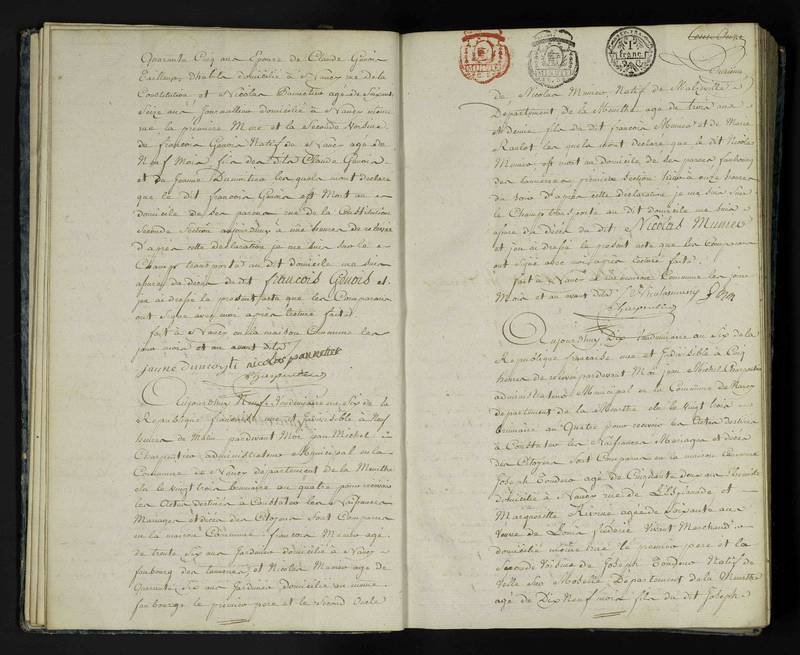 Quarante Cinq ans Epouse de Claude Genois
domicilié à Nancy rue de la
Constitution et Nicolas agé de
Seize ans Journaillier domicilié à Nancy même
rue la première Mere et la Seconde Voisine
de françois Genois Natif de Nancy age de
Neuf Mois fils des dits Claude Genois
et de Jeanne les quels mont declaré
que le dit francois Genois est Mort au
domicile de ses parens rue de la Constitution
Seconde Section aujourdhuy a une heure de relevée
d'après cette declaration je me suis sur le
Champ transporté au dit domicile me suis
assuré du décès du dit francois Genois et
jai dressé le present acte que les Comparans
ont Signé avec moi après lecture faite
fait à Nancy en la maison Commune les
jour mois et an avant dits
nicolas
Charpentier
Aujourdhuy Neuf Vendemiaire an Six de la
Republique française une et Indivisible à Neuf
heures du Matin pardevant Moi jean Michel
Charpentier administrateur Municipal en la
Commune de Nancy departement de la Meurthe
élu le vingt trois brumaire an quatre pour recevoir
les Actes destinés à Constater les Naissances
Mariages et décès des Citoyens Sont Comparus
en la maison Commune francois Munier age
de trente Six ans Jardinier domicilié à Nancy
faubourg des tanneries et Nicolas Munier age de
Quarante Six ans Jardinier Domicilié au même
faubourg le premier pere et le Second Oncle
1
franc
Onzieme
de Nicolas Munier, Natif de Malzéville
Departement de la Meurthe age de trois ans
et demi fils du dit francois Munier et de Marie
les quels mont declaré que le dit Nicolas
Munier est mort au domicile de ses parens faubourg
des tanneries première Section hier à onze heures
du Soir d'après cette declaration je me suis Sur
le Champ transporté au dit domicile me suis
assuré du décès du dit Nicolas Munier
et jen ai dressé le present acte que les Comparans
ont Signé avec moi après lecture faite.
fait à Nancy en la maison Commune les jour
Mois et an avant dits
Charpentier
Aujourdhuy Dix Vendemiaire an Six de la
Republique francaise une et Indivisible à Cinq
heures de relevée pardevant Moi jean Michel Charpentier
administrateur Municipal en la Commune de Nancy
departement de la Meurthe élu le vingt trois
brumaire an Quatre pour recevoir les Actes destinés
à Constater les Naissances Mariages et décès
des Citoyens Sont Comparus en la maison Commune
Joseph age de Cinquante deux ans
domicilié à Nancy rue de L'Esplanade et
Margueritte agée de Soixante ans
Veuve de Louis Vivant Marchand
domicilié même rue le premier pere et la
Seconde Voisine de Joseph Natif de
Ville Sur Moselle Departement de la Meurthe
agé de Dix Neuf mois fils du dit Joseph